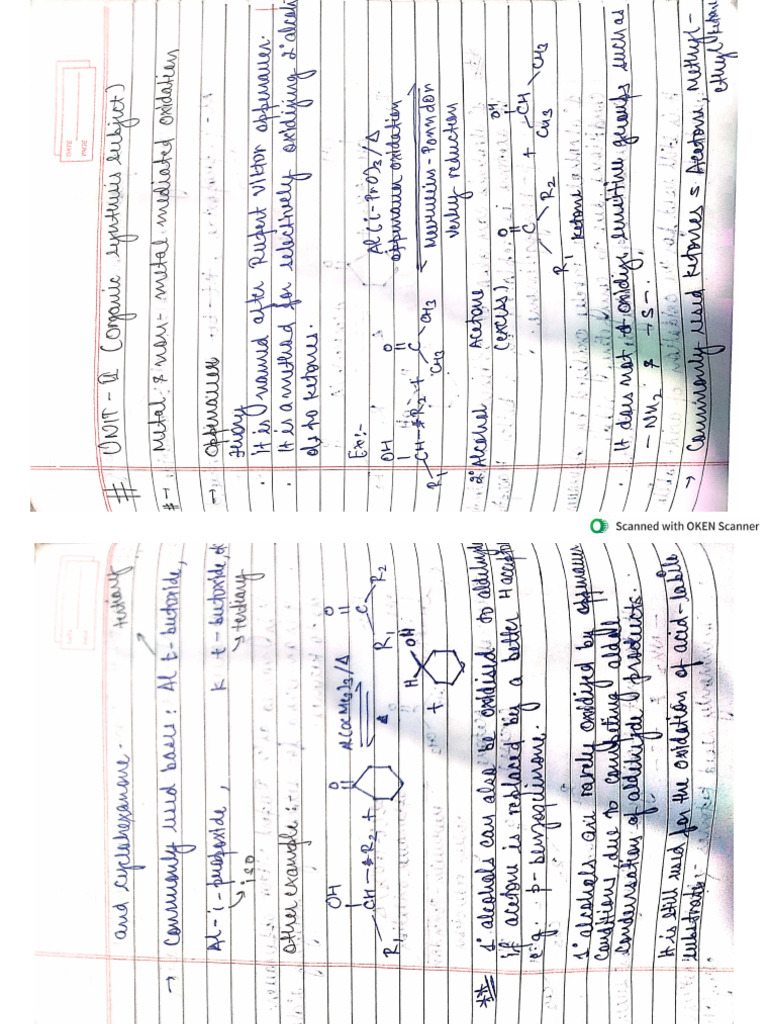 # UNIT - II (organic synthesis subject)
# → Metal & non-metal mediated oxidation
→ oppenauer
• It is named after Rupert Viktor oppenauer.
• It is a method for selectively oxidizing 2° alcohol
to ketones.
Ex:-
OH
O
R1 CH R2 + C
CH3 CH3
Al(i-PrO)3/Δ
oppenauer oxidation
Meerwein-Ponndorf
Verley reduction
2° Alcohol Acetone
(excess)
O
C
R1 R2
ketone
+
OH
CH
CH3 CH3
• It does not oxidize sensitive groups such as
-NH2 & -S-.
→ Commonly used ketones = Acetone, Methyl-
ethyl ketone
Scanned with OKEN Scanner
DATE
PAGE
and cyclohexanone.
tertiary
→ Commonly used bases: Al t-butoxide,
Al-i-propoxide, K t-butoxide,
iso
tertiary
Other example:-
OH
R1 CH R2 +
O
Al(OMe3)3/Δ
O
R1 C R2
+
H OH
** 1° alcohols can also be oxidised to aldehyde
if acetone is replaced by a better H acceptor
e.g. p-benzoquinone.
1° alcohols are rarely oxidized by oppenauer
conditions due to competing aldol
condensation of aldehyde products.
It is still used for the oxidation of acid-labile
substrats:-